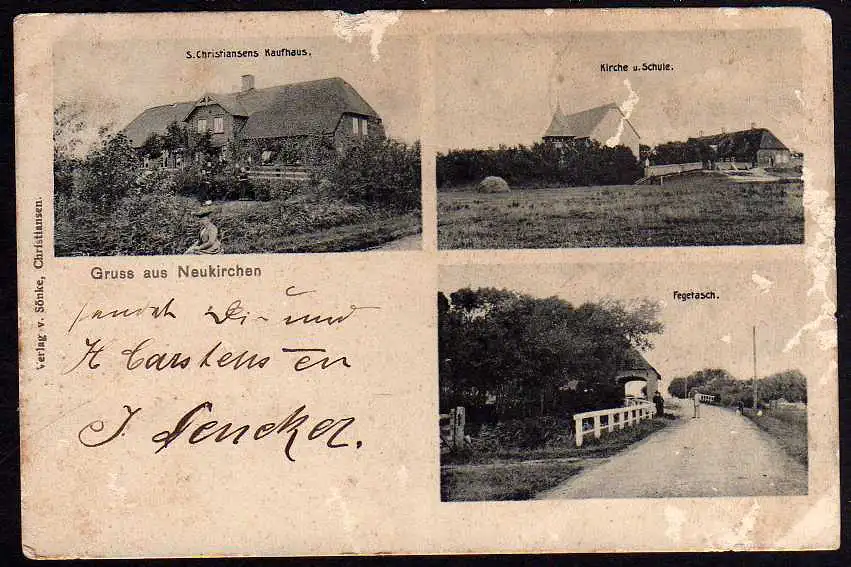 S. Christiansens Kaufhaus.
Kirche u. Schule.
Verlag v. Sönke, Christiansen.
Gruss aus Neukirchen
Fegetasch.
sendet Di- und
H Carstens en
J. Dencker.